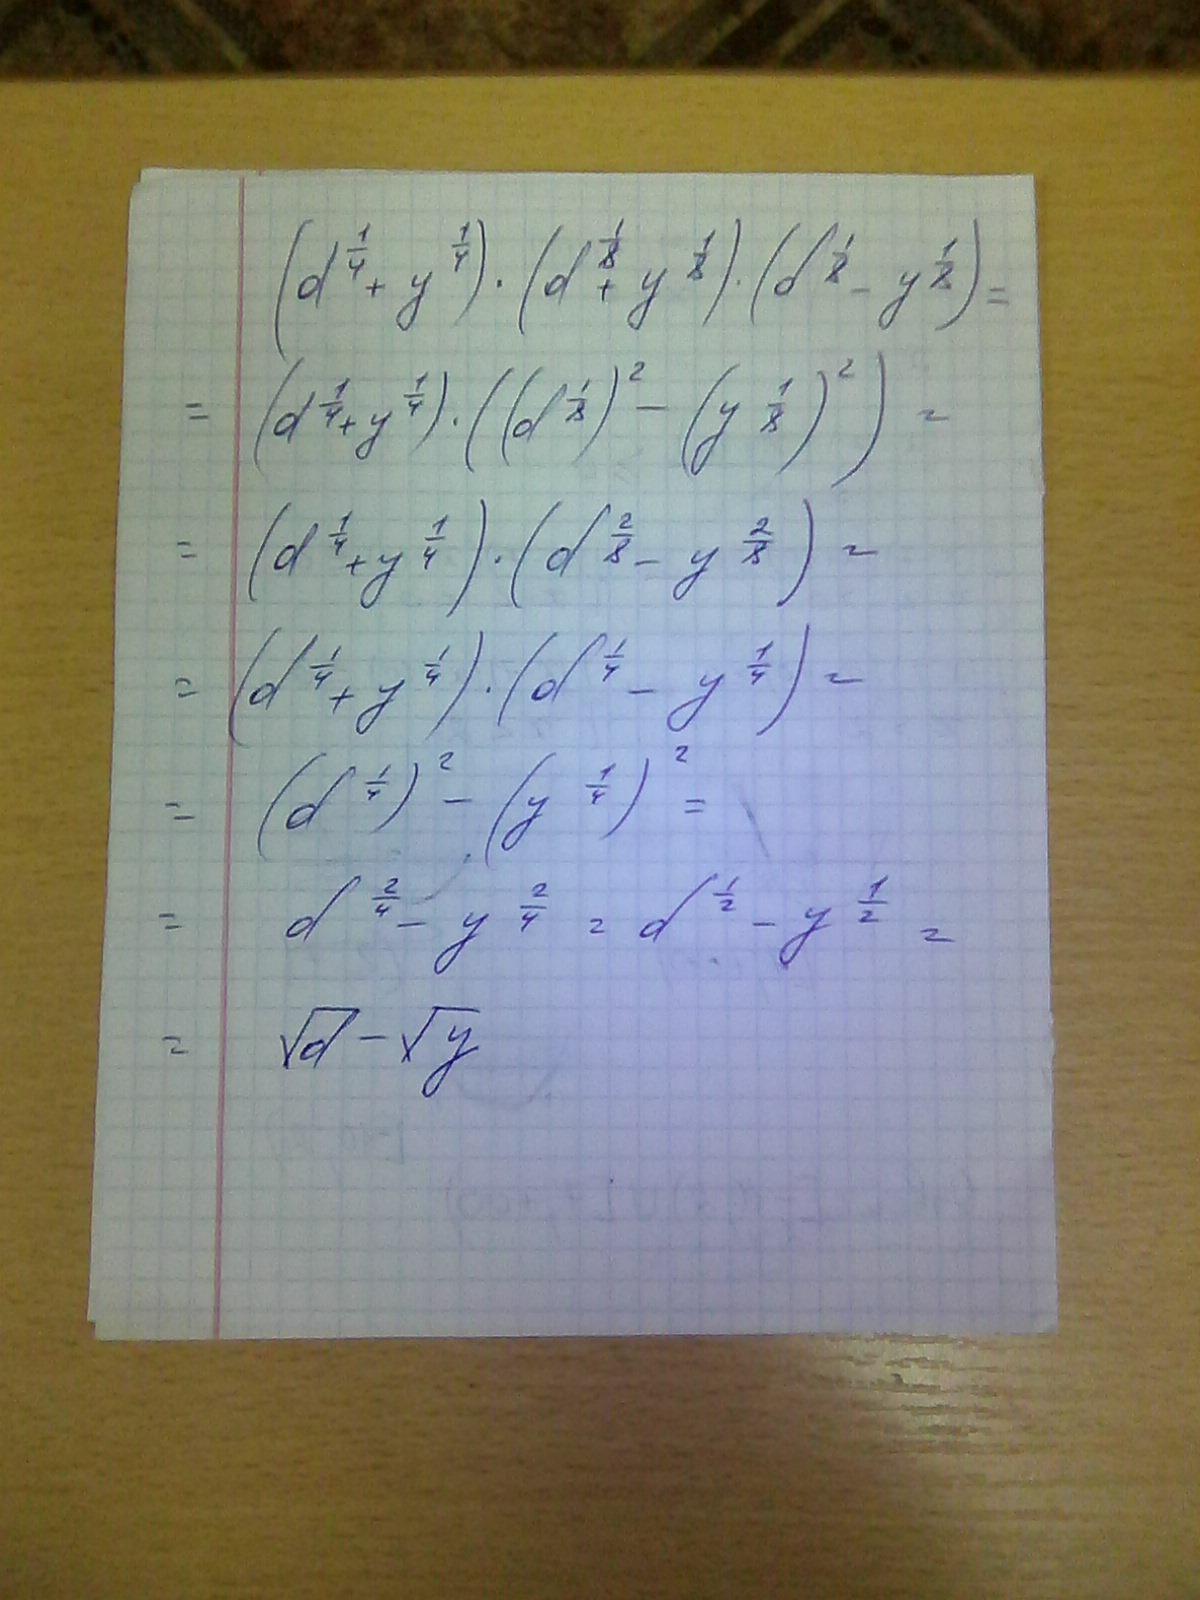 (d^{1/4} + y^{1/4}) · (d^{1/8} + y^{1/8}) · (d^{1/8} − y^{1/8}) =
= (d^{1/4} + y^{1/4}) · ((d^{1/8})^2 − (y^{1/8})^2) =
= (d^{1/4} + y^{1/4}) · (d^{2/8} − y^{2/8}) =
= (d^{1/4} + y^{1/4}) · (d^{1/4} − y^{1/4}) =
= (d^{1/4})^2 − (y^{1/4})^2 =
= d^{2/4} − y^{2/4} = d^{1/2} − y^{1/2} =
= √d − √y